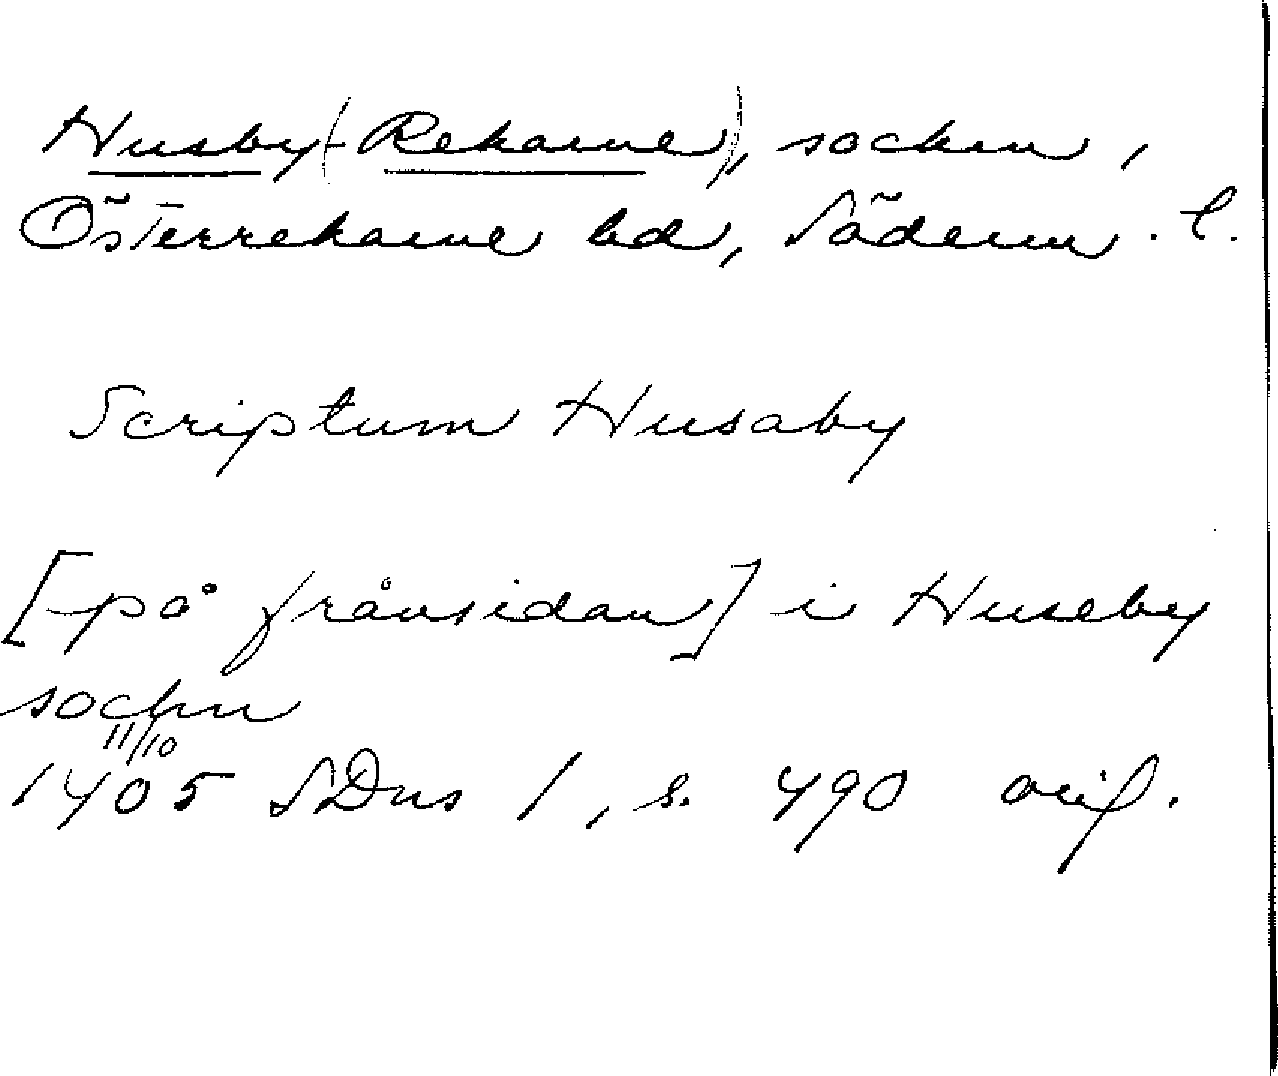 Husby(-Rekarne), socken,
Österrekarne hd, Söderm. l.
Scriptum Husaby
[på frånsidan] i Huseby
sockn
11/10
1405 SDns 1, s. 490 orig.